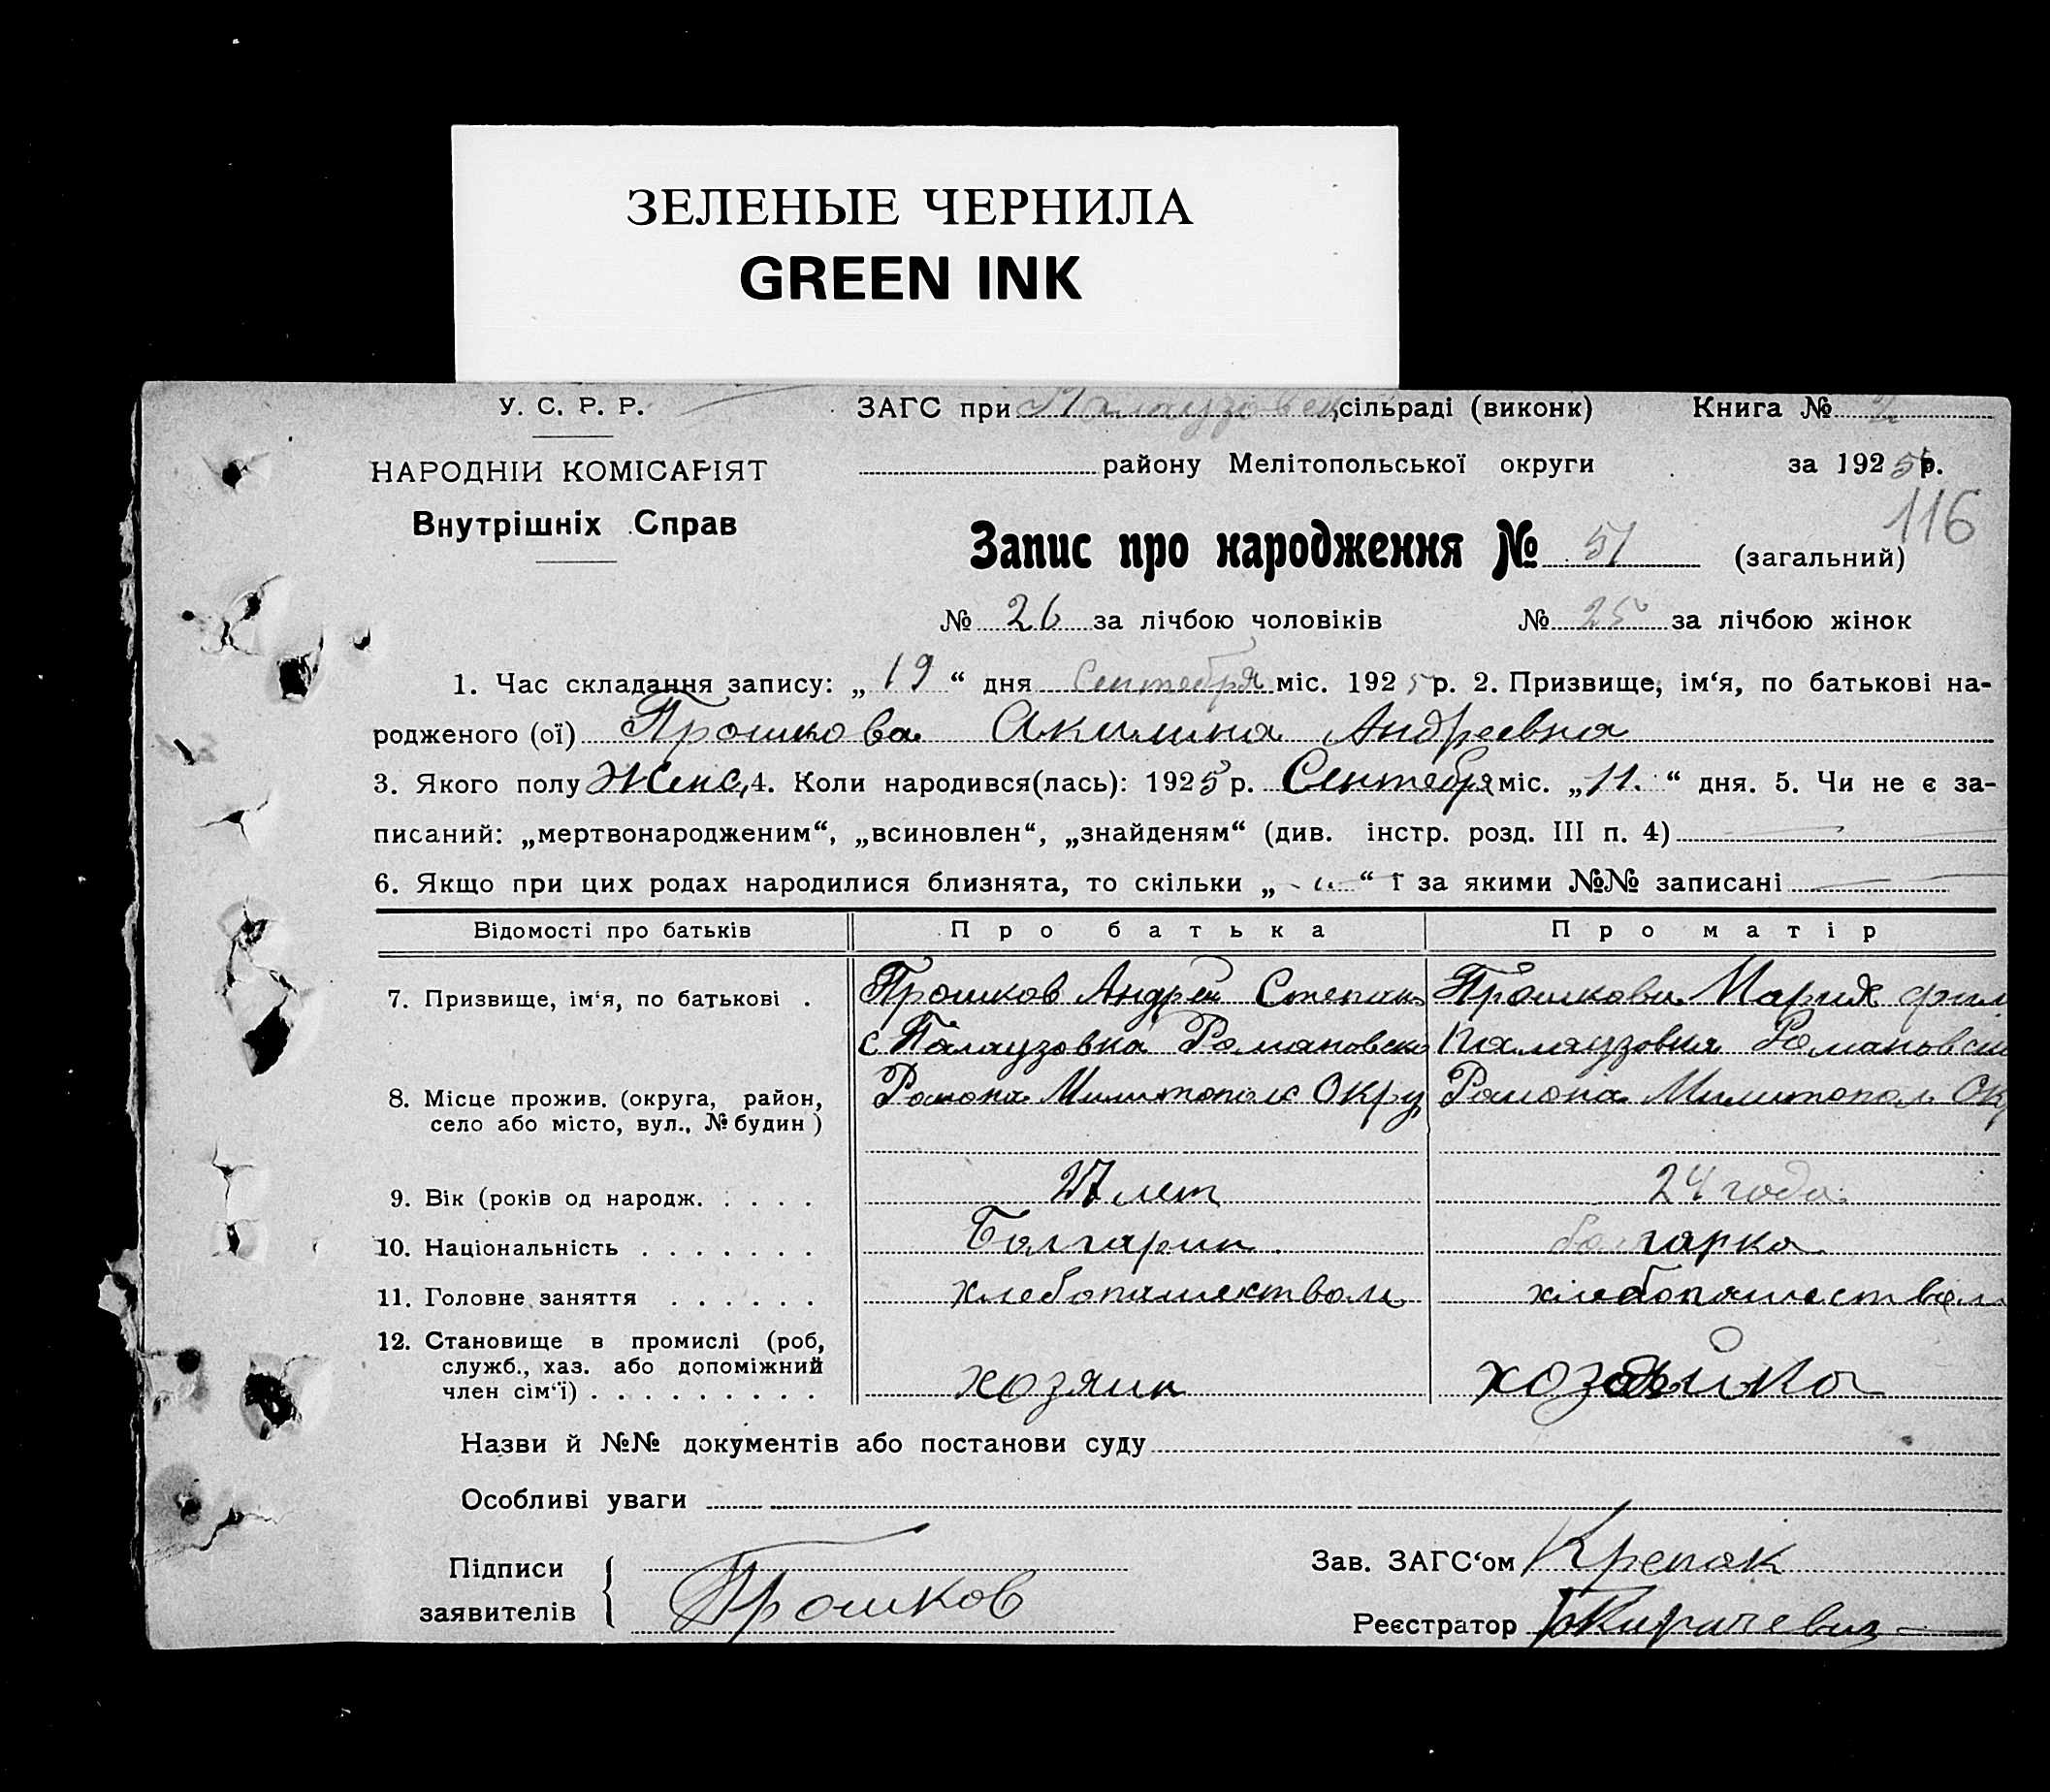 ЗЕЛЕНЫЕ ЧЕРНИЛА
GREEN INK
У. С. Р. Р. ЗАГС при Палаузовск сільраді (виконк) Книга №
НАРОДНІЙ КОМІСАРІЯТ району Мелітопольської округи за 1925 р.
116
Внутрішніх Справ
Запис про народження № 51 (загальний)
№ 26 за лічбою чоловіків № 25 за лічбою жінок
1. Час складання запису: „ 19 “ дня Сентября міс. 1925 р. 2. Призвище, ім‘я, по батькові на-
родженого (ої) Прошкова Акилина Андреевна
3. Якого полу Женс, 4. Коли народився(лась): 1925 р. Сентебря міс. „ 11. “ дня. 5. Чи не є за-
писаний: „мертвонародженим“, „всиновлен“, „знайденям“ (див. інстр. розд. III п. 4)
6. Якщо при цих родах народилися близнята, то скільки „ “ і за якими №№ записані
Відомості про батьків Про батька Про матір
7. Призвище, ім‘я, по батькові . Прошков Андрей Степан Прошкова Мария фил
с Палаузовка Романовско Палаузовка Романовск
8. Місце прожив. (округа, район, Района Милитополс Окру Района Милитопол Ок
село або місто, вул., № будин )
9. Вік (років од народж. . . . . 27 лет 24 года
10. Національність . . . . . . . Болгарин болгарка
11. Головне заняття . . . . . . хлебопашеством хлебопашеством
12. Становище в промислі (роб,
служб., хаз. або допоміжний
член сім‘ї) . . . . . . . . . хозяин хозяйка
Назви й №№ документів або постанови суду
Особливі уваги
Підписи Зав. ЗАГС‘ом Крепак
заявителів Прошков
Реєстратор